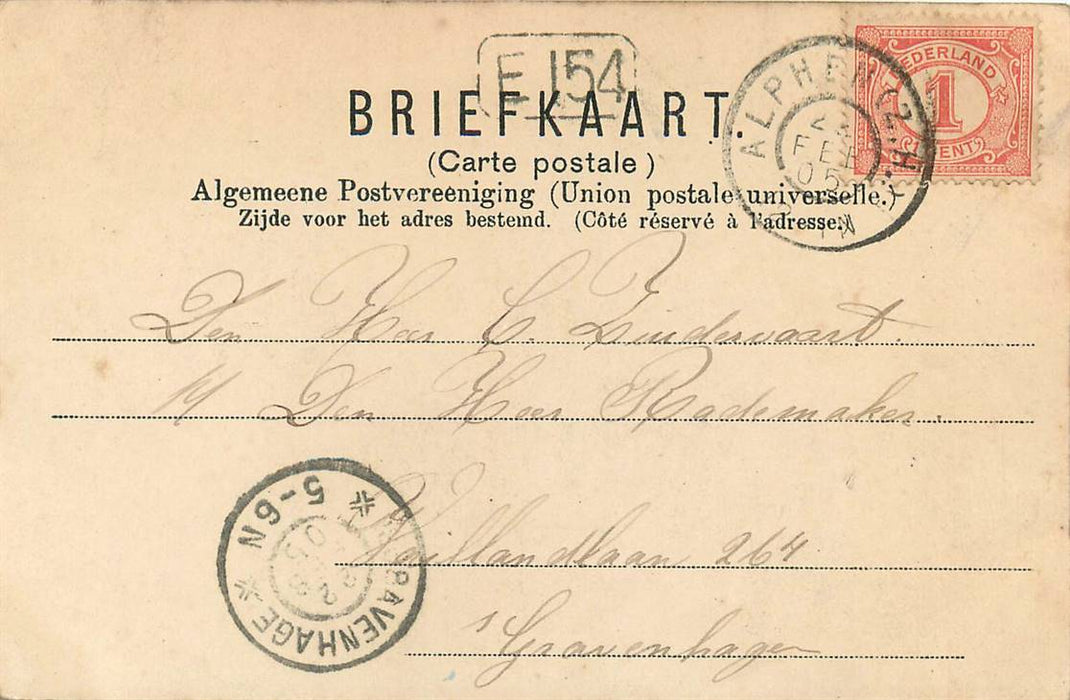 E 154
NEDERLAND
1
CENT
BRIEFKAART.
(Carte postale)
ALPHEN (Z.H.)
FEB
05
Algemeene Postvereeniging (Union postale universelle.)
Zijde voor het adres bestemd. (Côté réservé à l'adresse.)
Den Heer C. Zindervaart.
Den Heer Rademaker.
5-6N
'S GRAVENHAGE
264
's Gravenhagen